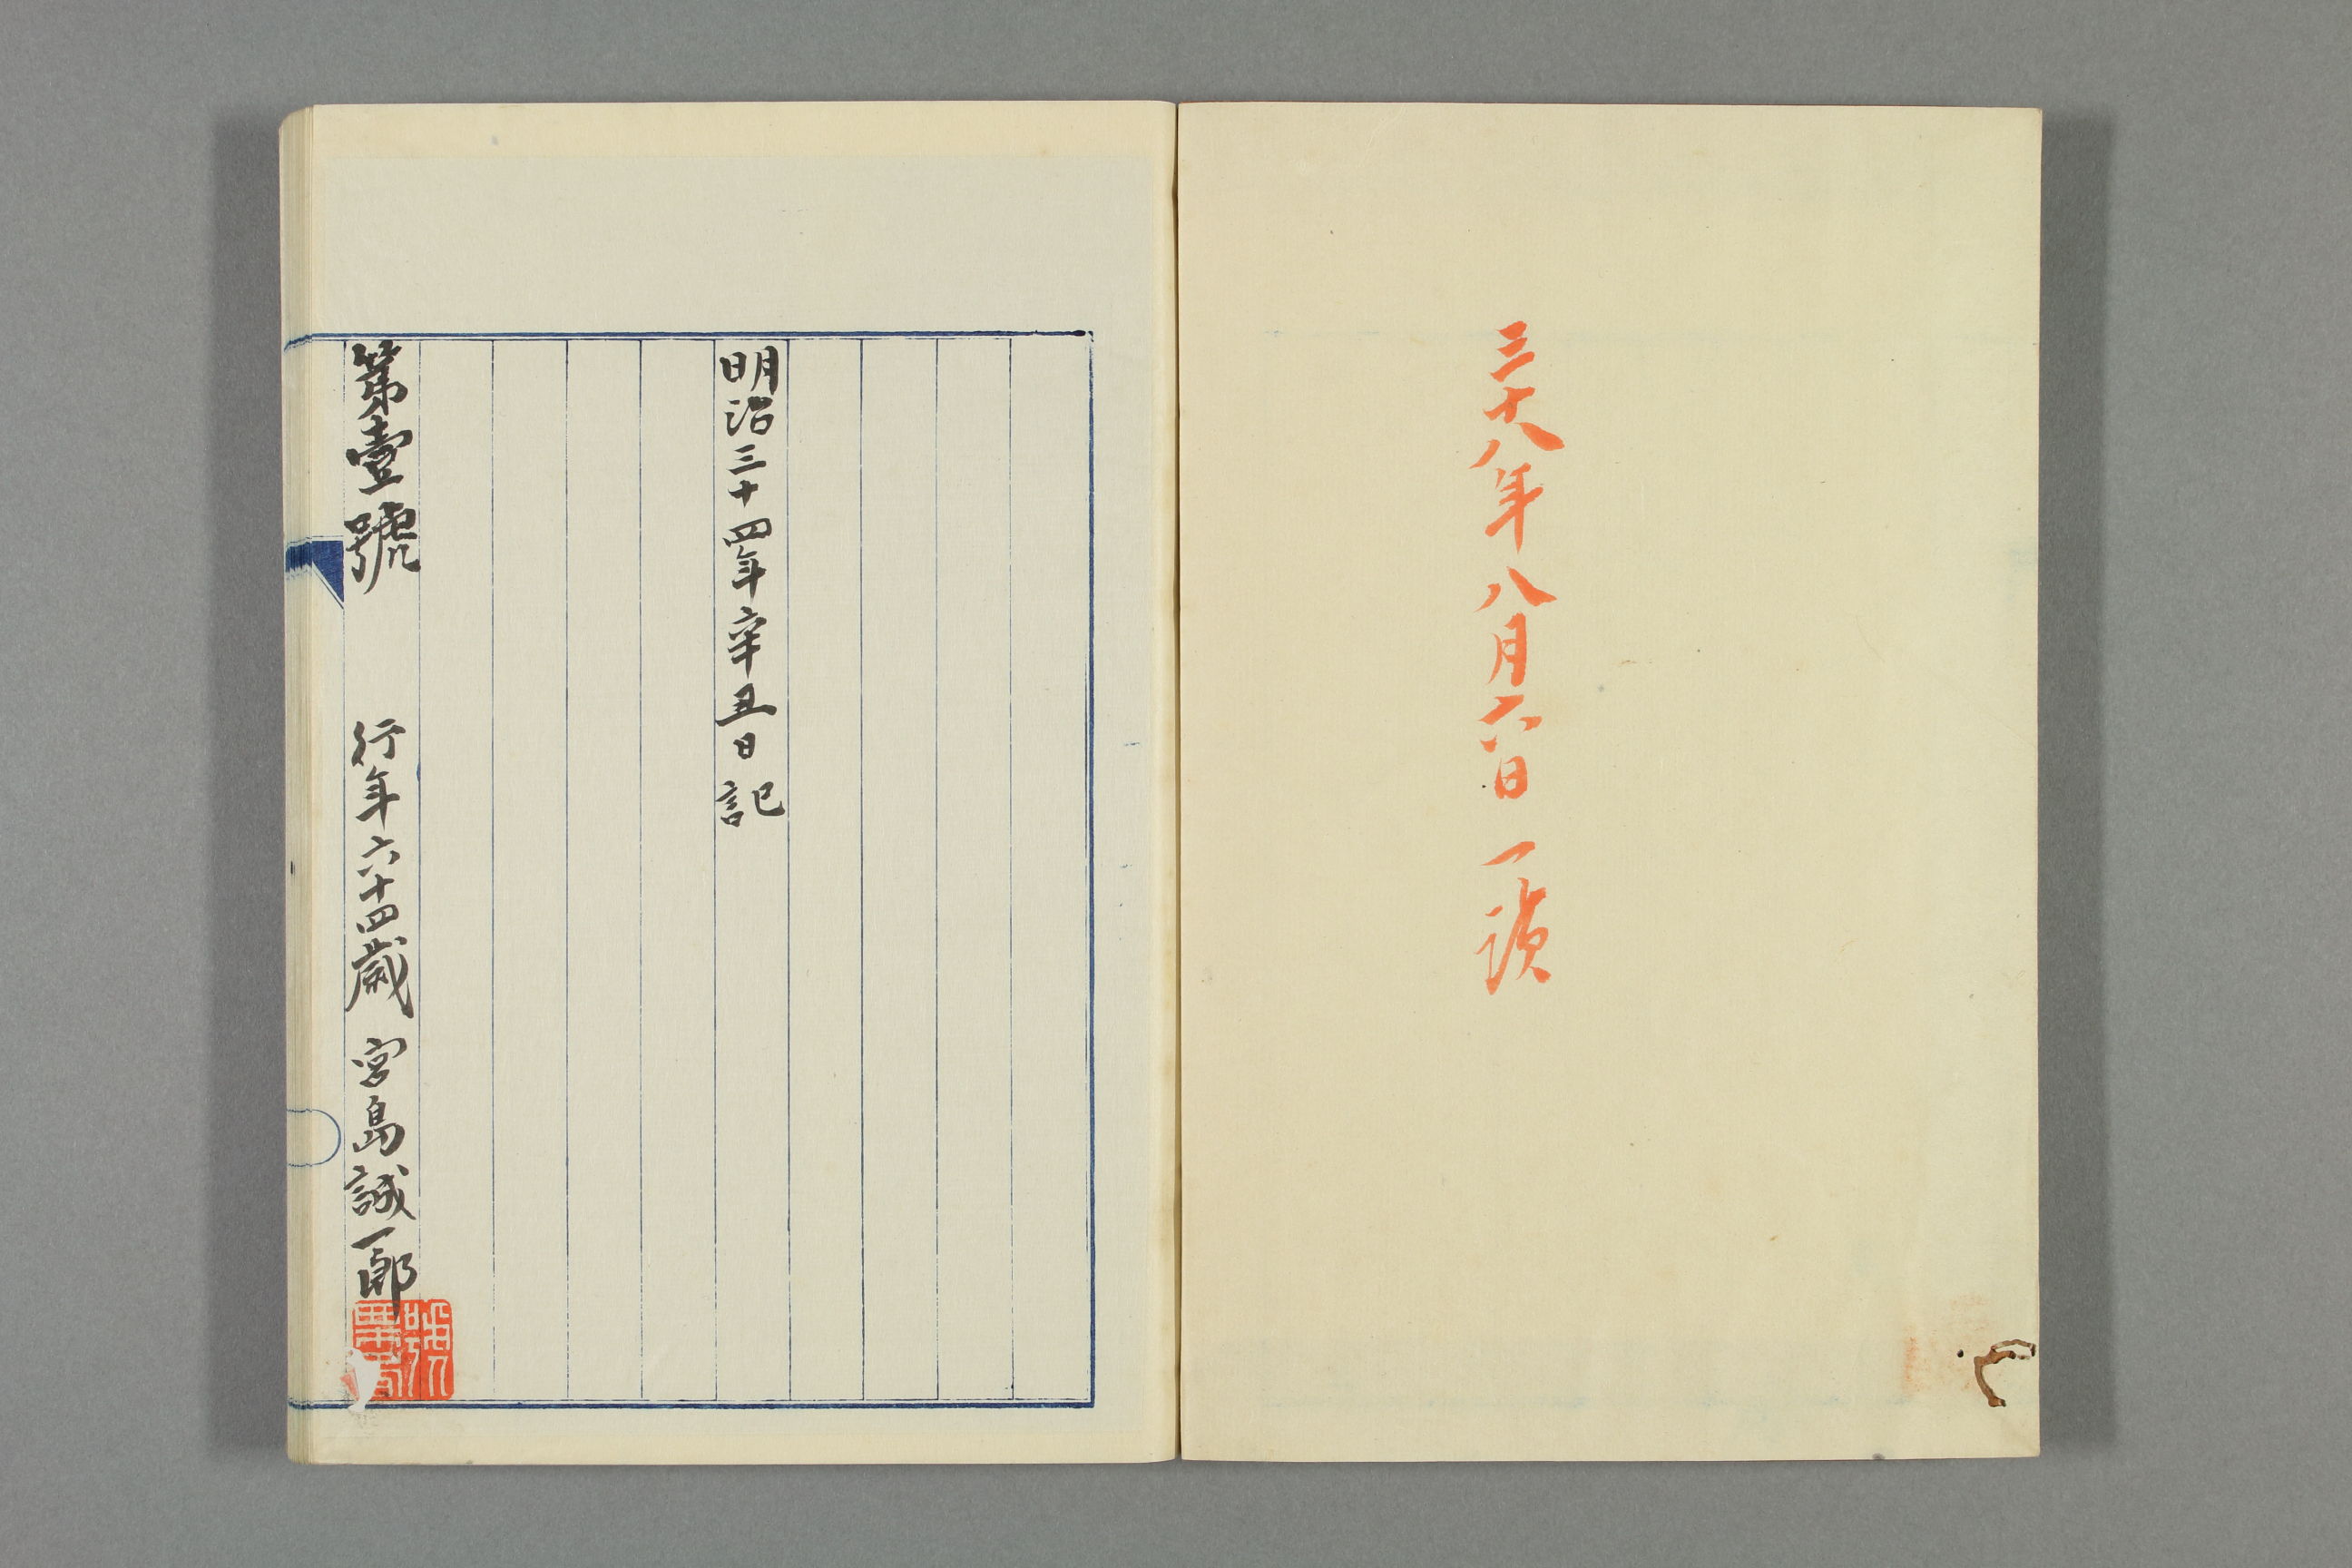 三十八年八月六日一讀
明治三十四年辛丑日記
第壹號　行年六十四歲　宮島誠一郎